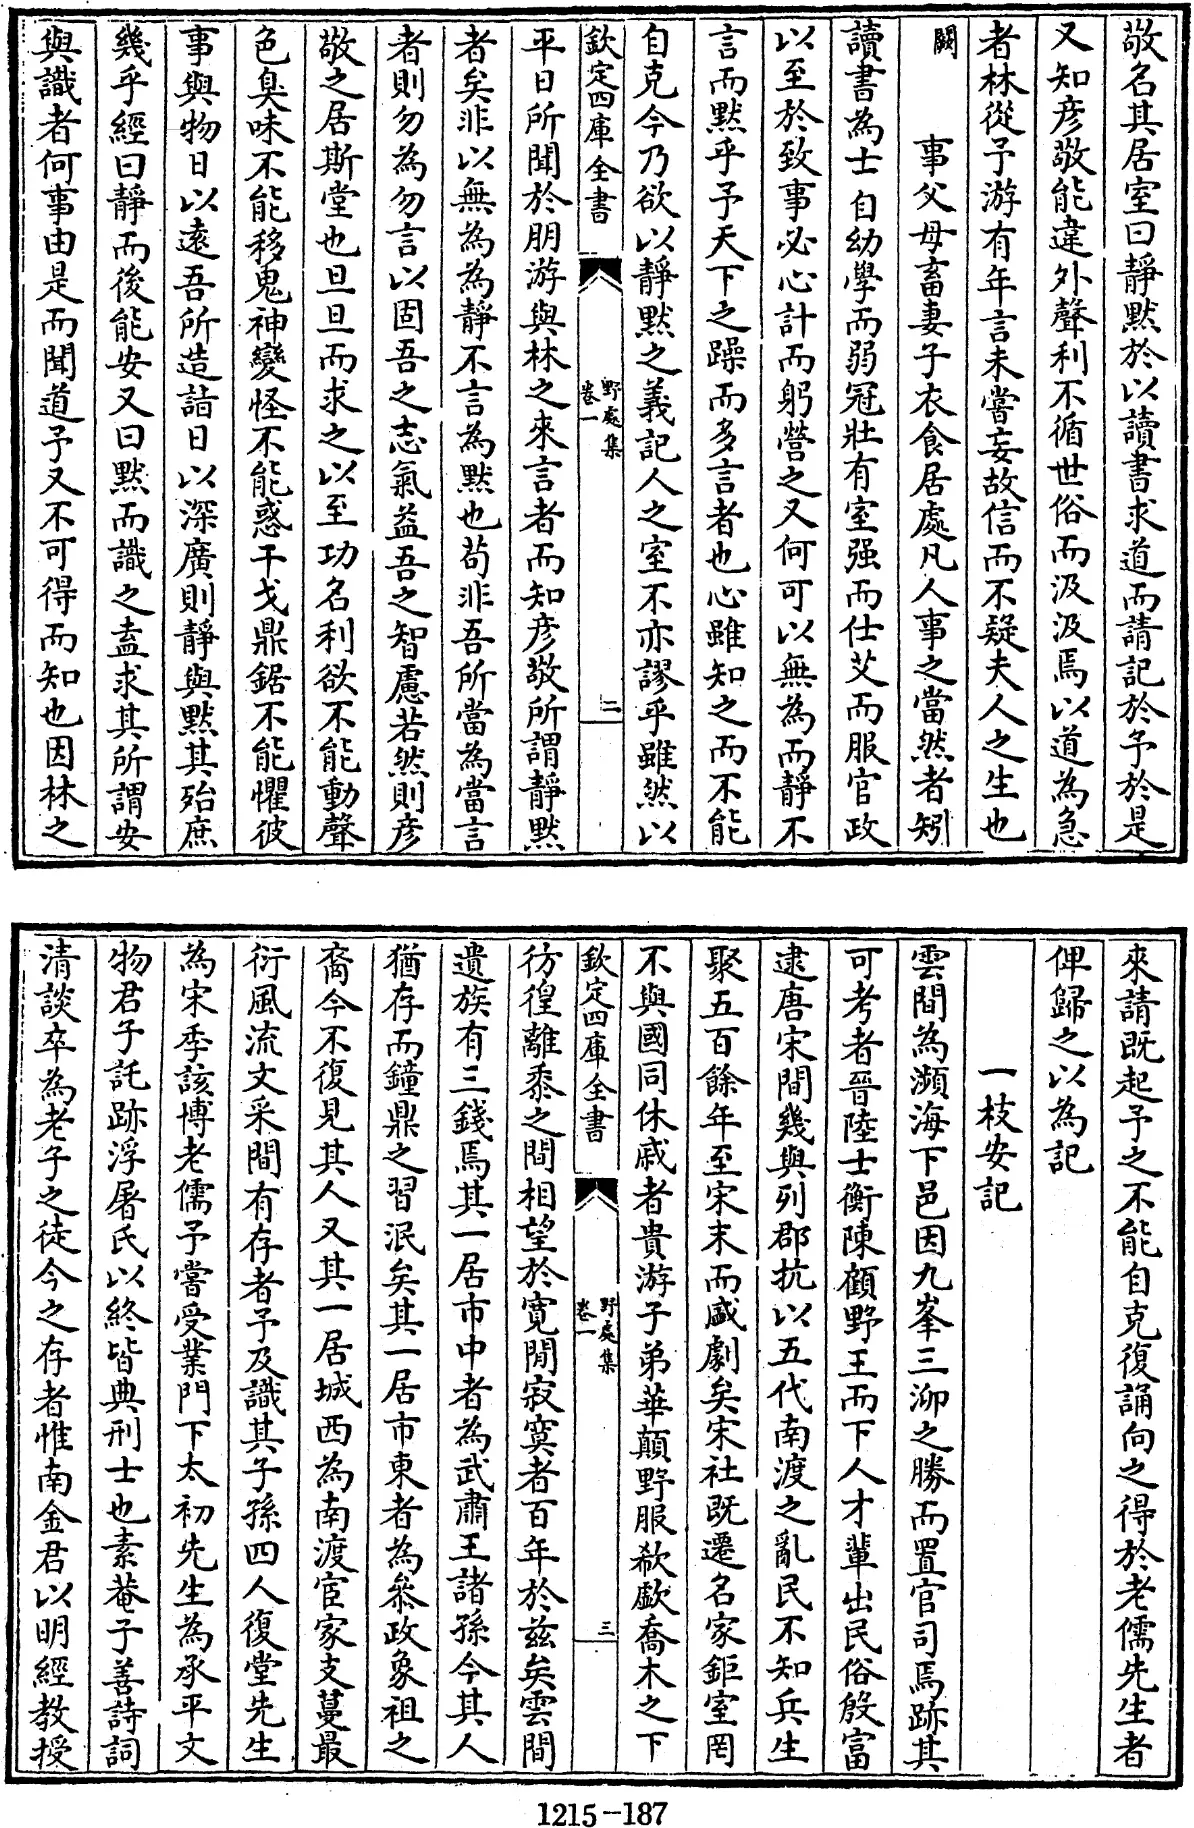 敬名其居室曰靜黙於以讀書求道而請記於予於是
又知彦敬能違外聲利不循世俗而汲汲焉以道為急
者林從予游有年言未嘗妄故信而不疑夫人之生也
闕　事父母畜妻子衣食居處凡人事之當然者矧
讀書為士自幼學而弱冠壯有室强而仕艾而服官政
以至於致事必心計而躬營之又何可以無為而靜不
言而黙乎予天下之躁而多言者也心雖知之而不能
自克今乃欲以靜黙之義記人之室不亦謬乎雖然以
欽定四庫全書
野處集
卷一
二
平日所聞於朋游與林之來言者而知彦敬所謂靜黙
者矣非以無為為靜不言為黙也苟非吾所當為當言
者則勿為勿言以固吾之志氣益吾之智慮若然則彦
敬之居斯堂也旦旦而求之以至功名利欲不能動聲
色臭味不能移鬼神變怪不能惑干戈鼎鋸不能懼彼
事與物日以遠吾所造詣日以深廣則靜與黙其殆庶
幾乎經曰靜而後能安又曰黙而識之盍求其所謂安
與識者何事由是而聞道予又不可得而知也因林之
來請既起予之不能自克復誦向之得於老儒先生者
俾歸之以為記
一枝安記
雲間為瀕海下邑因九峯三泖之勝而置官司焉跡其
可考者晉陸士衡陳顧野王而下人才輩出民俗殷富
逮唐宋間幾與列郡抗以五代南渡之亂民不知兵生
聚五百餘年至宋末而盛劇矣宋社既遷名家鉅室罔
不與國同休戚者貴游子弟華顛野服欷歔喬木之下
欽定四庫全書
野處集
卷一
三
彷徨離黍之間相望於寛閒寂寞者百年於兹矣雲間
遺族有三錢焉其一居市中者為武肅王諸孫今其人
猶存而鐘鼎之習泯矣其一居市東者為叅政象祖之
裔今不復見其人又其一居城西為南渡宦家支蔓最
衍風流文采間有存者予及識其子孫四人復堂先生
為宋季該博老儒予嘗受業門下太初先生為承平文
物君子託跡浮屠氏以終皆典刑士也素菴子善詩詞
清談卒為老子之徒今之存者惟南金君以明經教授
1215-187